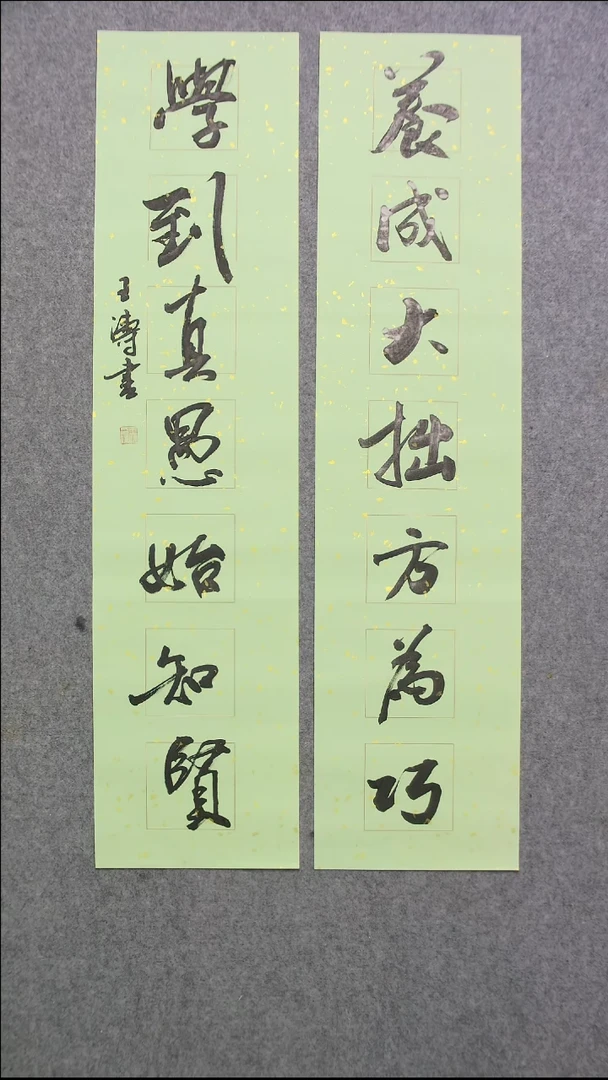 養成大拙方為巧
學到真愚始知賢
王濤書